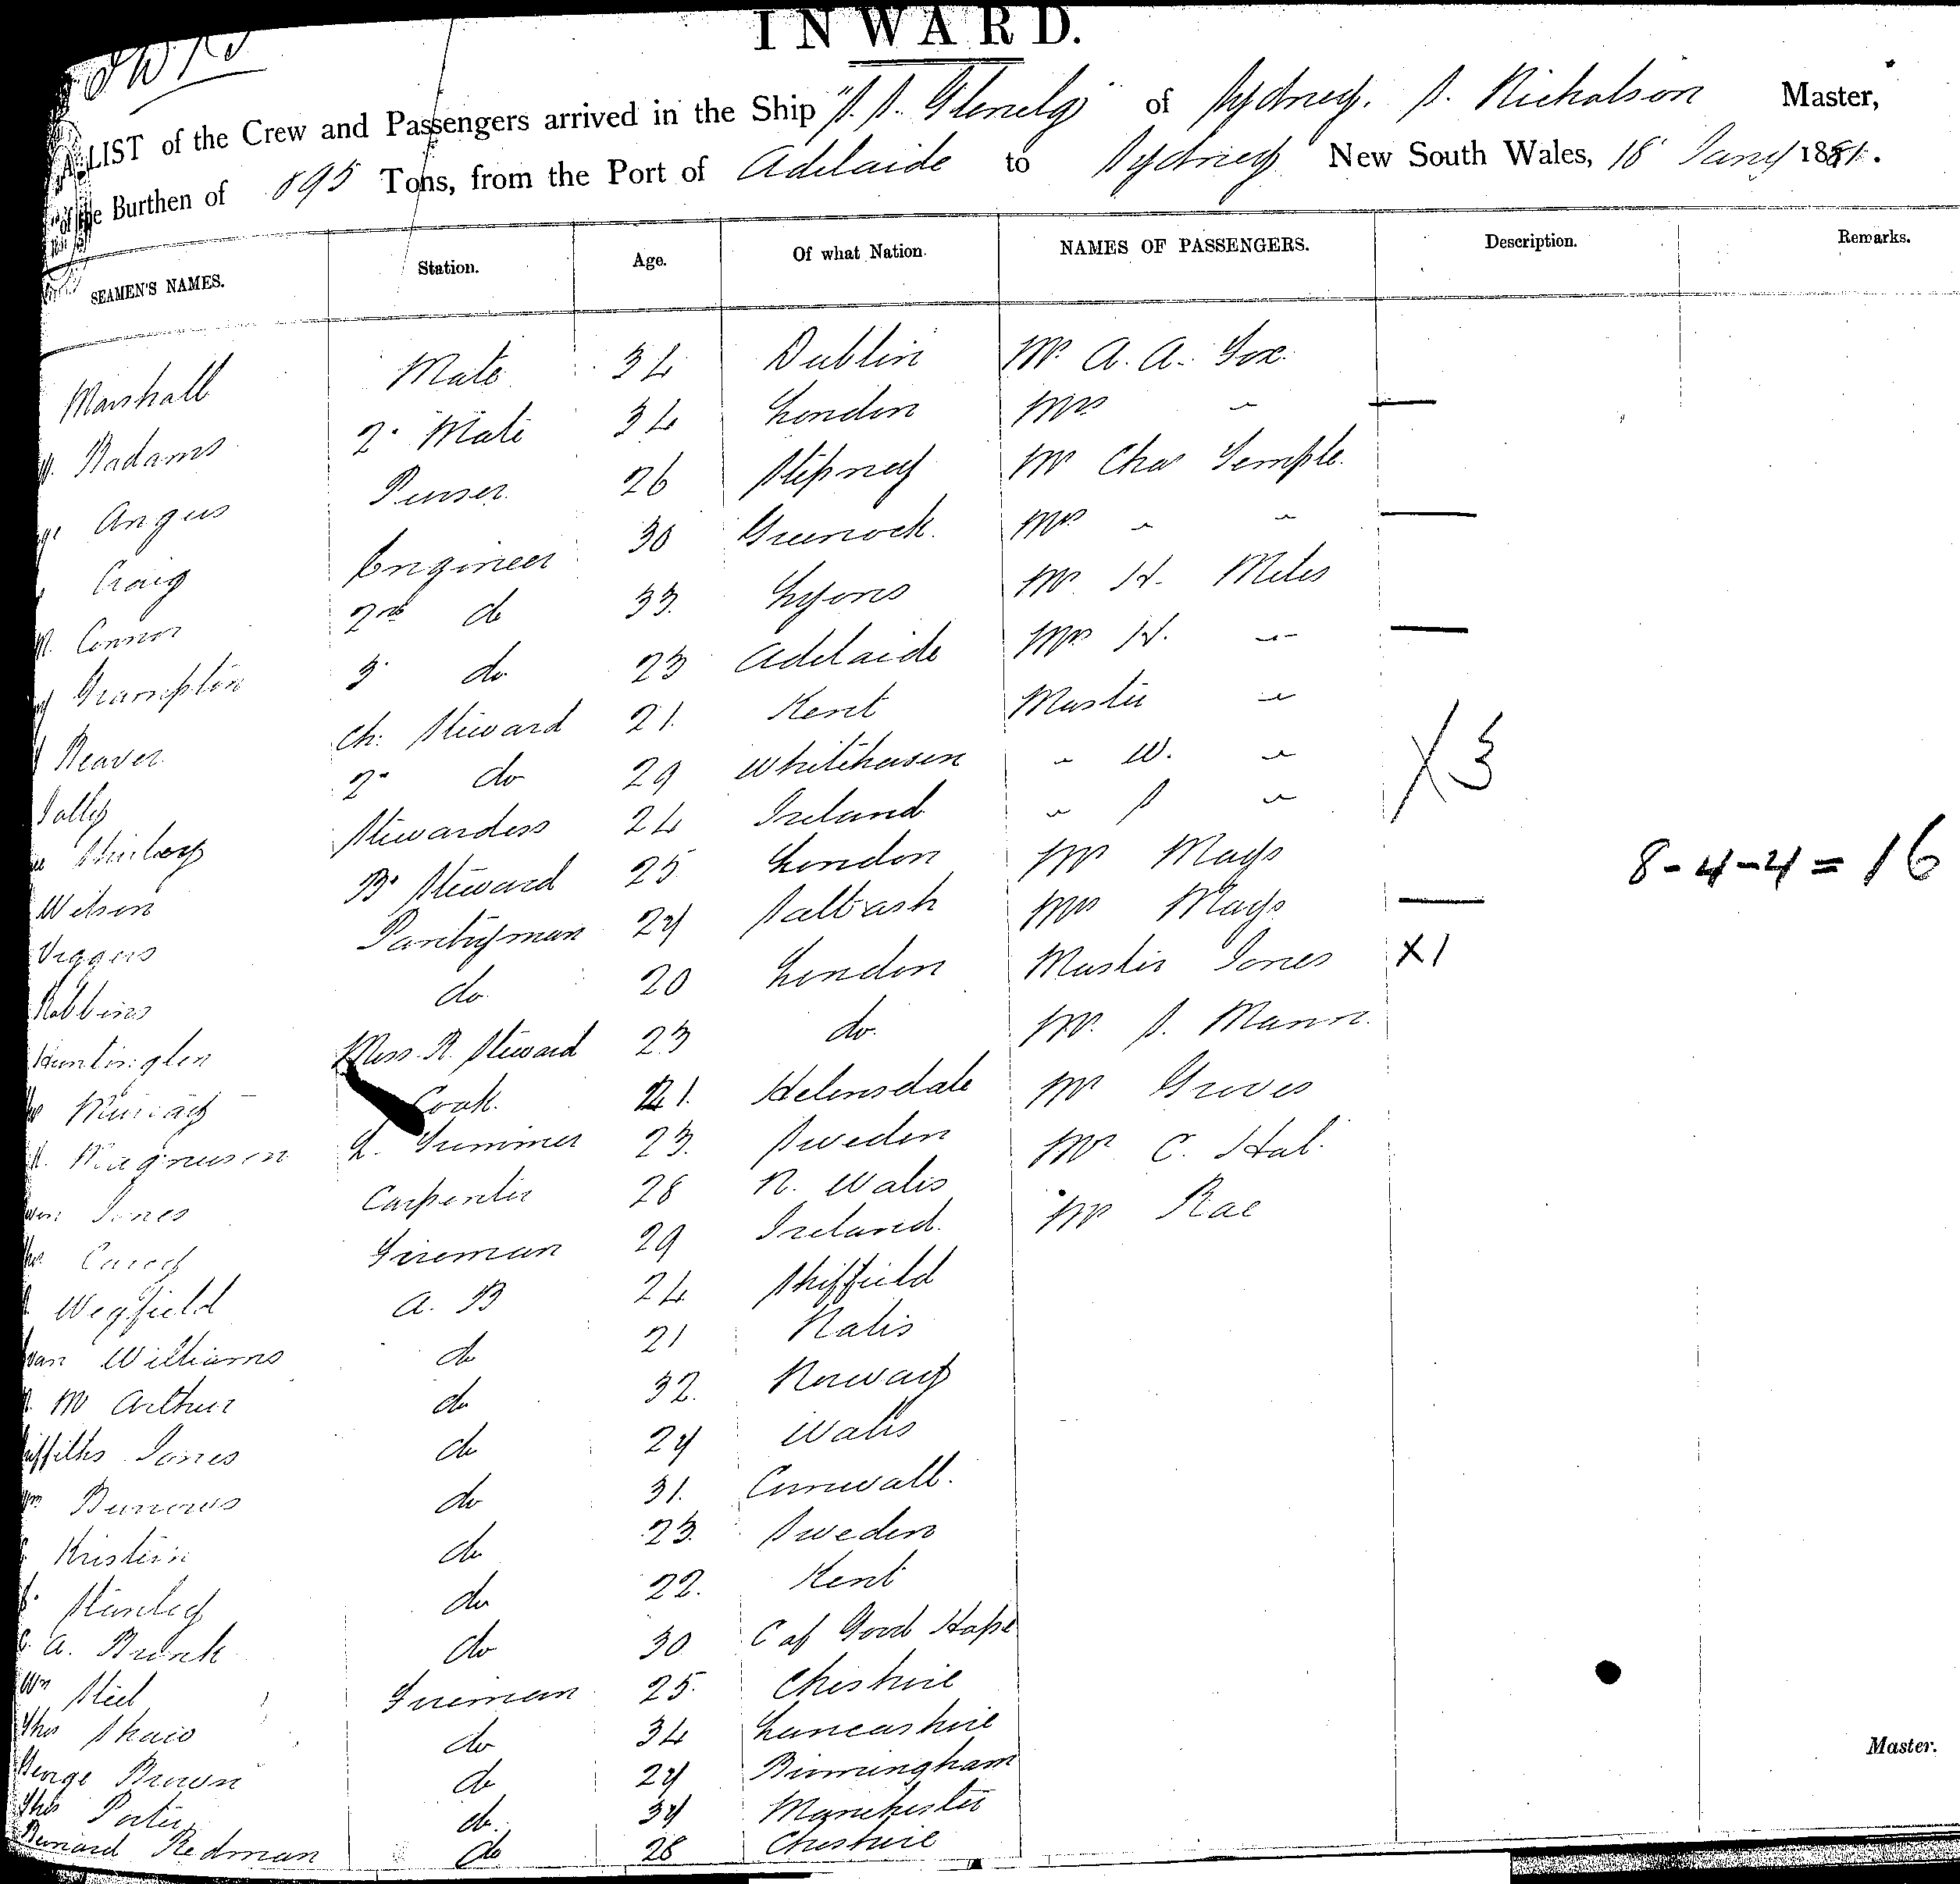 INWARD.
A LIST of the Crew and Passengers arrived in the Ship "S.S. Glenelg" of Sydney. S. Nicholson Master,
of the Burthen of 895 Tons, from the Port of Adelaide to Sydney New South Wales, 18 Jany 1881.
SEAMEN'S NAMES. Station. Age. Of what Nation. NAMES OF PASSENGERS. Description. Remarks.
Marshall Mate 34 Dublin Mr. A. A. Fox.
Badams 2d Mate 34 London Mrs " —
Angus Purser 26 Stepney Mr Chas Temple.
Craig Engineer 30 Greenock. Mrs " " —
Connor 2nd do 33. Lyons Mr H. Miles
Grampton 3d do 23 Adelaide Mrs H. " —
Beaver Ch. Steward 21. Kent Master "
2d do 29 Whitehaven " W. " X3
Stewardess 24 Ireland " S "
Wilson B. Steward 25 London Mr Mays 8-4-4=16
Viggers Pantryman 24 Saltash Mrs Mays —
Robbins do 20 London Master Jones X1
Huntinglen Mess. R. Steward 23 do. Mr. S. Mann.
Murray Cook. 41. Helmsdale Mr Groves
Magnusen L. Trimmer 23. Sweden Mr C. Hal.
Jones Carpenter 28 N. Wales Mr Rae
Carey Fireman 29 Ireland.
Wegfield A. B 24 Sheffield
Evan Williams do 21 Wales
Mc Arthur do 32. Norway
Griffiths Jones do 24 Wales
Wm Burrows do 31. Cornwall.
Kristein do 23. Sweden
Stanley do 22. Kent
A. Brink do 30 C of Good Hope
Wm Steel Fireman 25. Cheshire
Thos Shaw do 34 Lancashire
George Brown do 24 Birmingham
Thos Porter do. 34 Manchester
Bernard Redman do 28 Cheshire
Master.